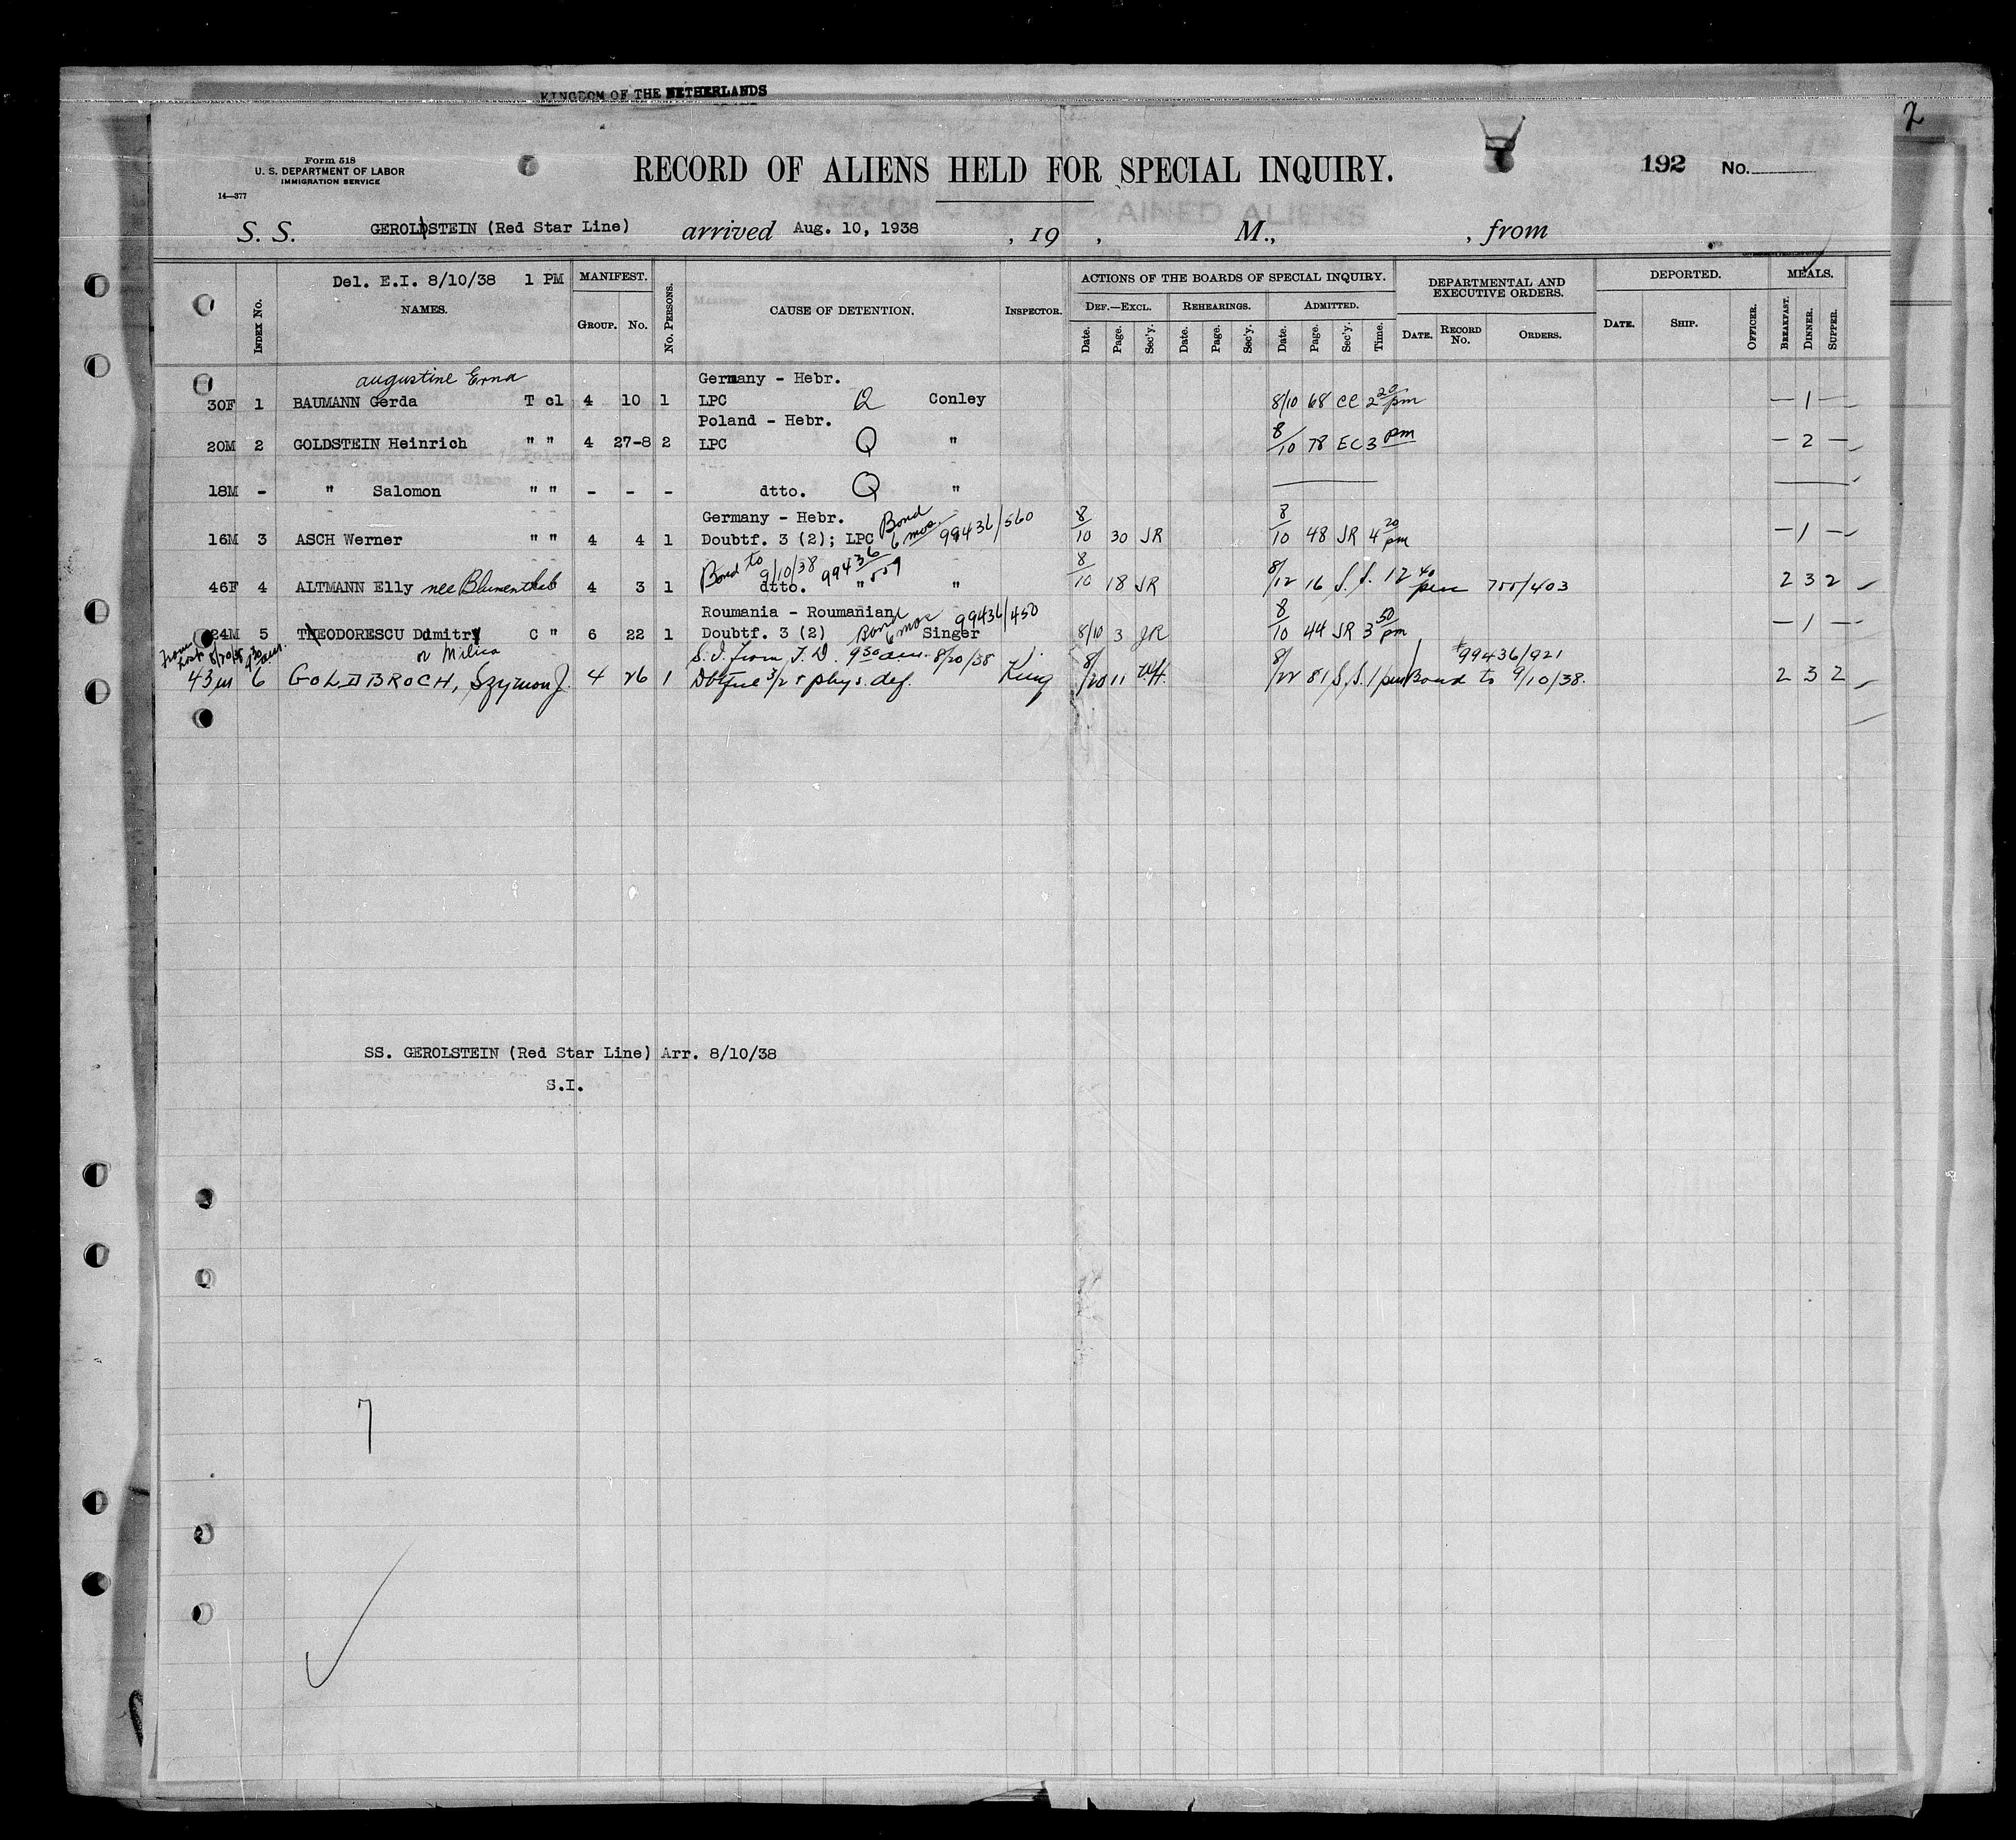 KINGDOM OF THE NETHERLANDS
2
Form 518
U. S. DEPARTMENT OF LABOR
IMMIGRATION SERVICE
14—377
RECORD OF ALIENS HELD FOR SPECIAL INQUIRY.
192 No.
S. S. GEROLDSTEIN (Red Star Line) arrived Aug. 10, 1938 , 19 , M., , from
Del. E.I. 8/10/38 1 PM MANIFEST. ACTIONS OF THE BOARDS OF SPECIAL INQUIRY. DEPARTMENTAL AND EXECUTIVE ORDERS. DEPORTED. MEALS.
INDEX No. NAMES. GROUP. No. No. PERSONS. CAUSE OF DETENTION. INSPECTOR. DEF.—EXCL. REHEARINGS. ADMITTED.
Date. Page. Sec'y. Date. Page. Sec'y. Date. Page. Sec'y. Time. DATE. RECORD No. ORDERS. DATE. SHIP. OFFICER. BREAKFAST. DINNER. SUPPER.
augustine Erna Germany - Hebr.
30F 1 BAUMANN Gerda T cl 4 10 1 LPC Q Conley 8/10 68 CC 2 20 pm — 1 —
Poland - Hebr.
20M 2 GOLDSTEIN Heinrich " " 4 27-8 2 LPC Q " 8/10 78 EC 3 pm — 2 —
18M - " Salomon " " - - - dtto. Q "
Germany - Hebr. Bond 6 mos. 99436/560
16M 3 ASCH Werner " " 4 4 1 Doubtf. 3 (2); LPC 8/10 30 JR 8/10 48 JR 4 20 pm — 1 —
Bond to 9/10/38 99436
46F 4 ALTMANN Elly nee Blumenthal " " 4 3 1 dtto. " " 8/10 18 JR 8/12 16 S.S. 12 40 pm 755/403 2 3 2
Roumania - Roumanian Bond 6 mos 99436/450
24M 5 THEODORESCU Ddmitry C " 6 22 1 Doubtf. 3 (2) Singer 8/10 3 JR 8/10 44 JR 3 50 pm — 1 —
or Milica
From Hosp 8/20/38 9 30 am. S.I. from T.D. 9 30 am. 8/20/38 #99436/921
43 m 6 GOLDBROCH, Szymon J. 4 26 1 Dbtful 3/2 & phys. def. King 8/20 11 8/22 81 S.S. 1 pm Bond to 9/10/38. 2 3 2
SS. GEROLSTEIN (Red Star Line) Arr. 8/10/38
S.I.
7